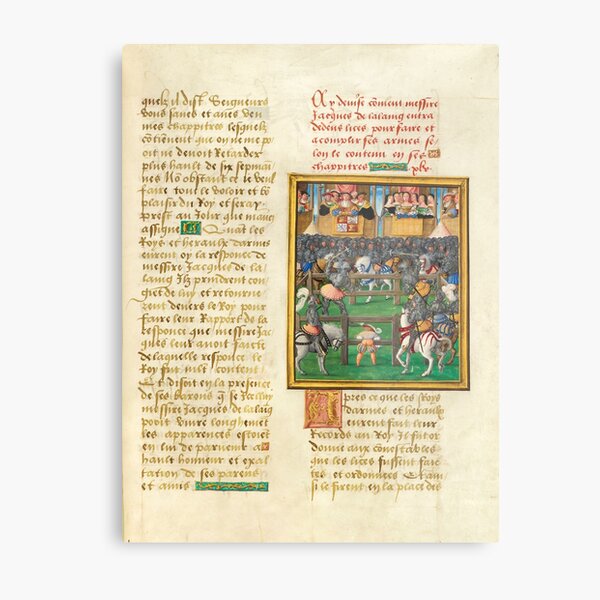 quelz il dist Seigneurs
vous savez et avez veu
mes chappitres lesquelz
cōtienēt que on ne me po
oit ne devoit Retarder
plus hault de six sepmai
nes Nō obstāt ce Je veul
faire tout le voloir et bō
plaisir du Roy et seray
prest au Jour que mavez
assigne Quāt les
Roys et heraulx darmes
eurent oy la responce de
messire Jacques de la
laing Ilz prendrent con
giet de luy et retourne
rent devers le Roy pour
faire leur Rapport de la
responce que messire Jac
ques leur avoit faicte
de laquelle responce le
Roy fut moult content
Et disoit en la presence
de ses barons q̄ se Jcelluy
messire Jacques de lalaīg
povoit vivre longhemēt
les apparences estoiēt
en lui de parvenir a
hault honneur et exal
tation de ses parens
et amis
Ay devise cōment messire
Jacques de lalaing entra
dedens lices pour faire et
acomplir ses armes se
lon le contenu en ses
chappitres
Apres ce que les Roys
darmes et heraulx
eurent fait leur
Recors au Roy Il fut or
donne aux cōnestables
que les lices fussent fai
tes et ordonnees Et ain
si le firent en la place des